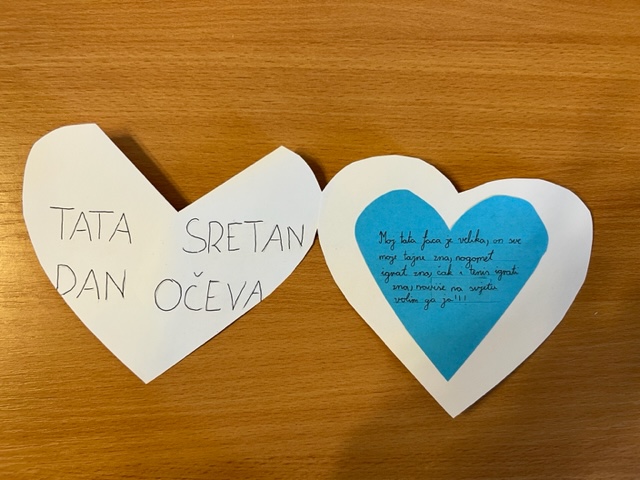 TATA SRETAN
DAN OČEVA
Moj tata faca je velika, on sve
moje tajne zna, nogomet
igrat zna, čak i tenis igrati
zna, najviše na svijetu
volim ga ja!!!